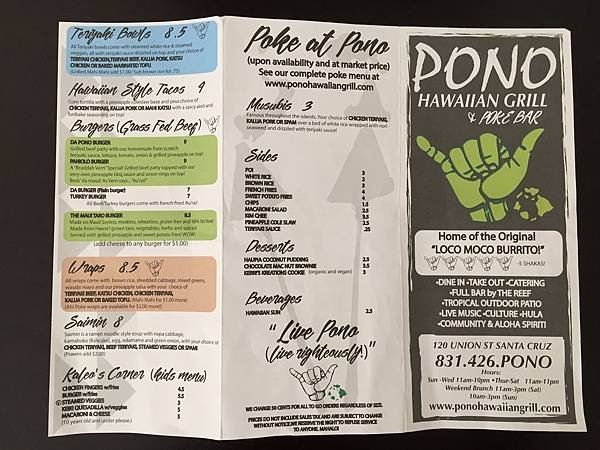 Teriyaki Bowls 8.5
All Teriyaki bowls come with steamed white rice & steamed
veggies, all with teriyaki sauce drizzled on top and your choice of
TERIYAKI CHICKEN, TERIYAKI BEEF, KALUA PORK, KATSU
CHICKEN OR BAKED MARINATED TOFU.
(Grilled Mahi Mahi add $1.00/ Sub brown rice for .75)
Hawaiian Style Tacos 9
Corn tortilla with a pineapple coleslaw base and your choice of
CHICKEN TERIYAKI, KALUA PORK OR MAHI KATSU with a spicy aioli and
furikake seasoning on top!
Burgers (Grass Fed Beef)
DA PONO BURGER 9
Grilled beef patty with our homemade from scratch
teriyaki sauce, lettuce, tomato, onion & grilled pineapple on top!
PANIOLO BURGER 9
A "Braddah Vern" Special! Grilled beef patty topped with our
very own pineapple bbq sauce and onion rings on top!
Brok' da mout! As Vern says..."Au'rai!"
DA BURGER (Plain burger) 7
TURKEY BURGER 7
All Beef/Turkey burgers come with french fries! Au'rai!
THE MAUI TARO BURGER 8.5
Made on Maui! Soyless, meatless, wheatless, gluten free and
Made from Hawai'i grown taro, vegetables, herbs and spices!
Served with grilled pineapple and sweet potato fries! WOW!
(add cheese to any burger for $1.00)
Wraps 8.5
All wraps come with brown rice, shredded cabbage, mixed greens,
wasabi mayo and our pineapple salsa with your choice of
TERIYAKI BEEF, KATSU CHICKEN, CHICKEN TERIYAKI,
KALUA PORK OR BAKED TOFU. (Mahi Mahi for $1.00 more)
(Ahi Poke wraps are available for $2.00 more)
Saimin 8
Saimin is a ramen noodle style soup with napa cabbage,
kamaboko (fishcake), egg, edamame and green onion, with your choice of
CHICKEN TERIYAKI, BEEF TERIYAKI, STEAMED VEGGIES OR SPAM!
(Prawns add $2.00)
Kaleo's Corner (kids menu)
CHICKEN FINGERS w/fries 4.5
BURGER w/fries 5.5
STEAMED VEGGIES 3
KEIKI QUESADILLA w/veggies 5
MACARONI & CHEESE 5
(10 years old and under please.)
Poke at Pono
(upon availability and at market price)
See our complete poke menu at
www.ponohawaiiangrill.com
Musubis 3
Famous throughout the islands. Your choice of CHICKEN TERIYAKI,
KALUA PORK OR SPAM over a bed of white rice wrapped with nori
seaweed and drizzled with teriyaki sauce!
Sides
POI
WHITE RICE 2
BROWN RICE 3
FRENCH FRIES 4
SWEET POTATO FRIES 4
CHIPS 1.5
MACARONI SALAD 2.5
KIM CHEE 3.5
PINEAPPLE COLE SLAW 2.5
TERIYAKI SAUCE .25
Desserts
HAUPIA COCONUT PUDDING 2.5
CHOCOLATE MAC NUT BROWNIE 3.5
KERRI'S KREATIONS COOKIE (organic and vegan) 3
Beverages
HAWAIIAN SUN 2.5
"Live Pono
(live righteously!)"
WE CHARGE 50 CENTS FOR ALL TO GO ORDERS REGARDLESS OF SIZE.
PRICES DO NOT INCLUDE SALES TAX AND ARE SUBJECT TO CHANGE
WITHOUT NOTICE. WE RESERVE THE RIGHT TO REFUSE SERVICE
TO ANYONE. MAHALO!
PONO
HAWAIIAN GRILL
& POKE BAR
Home of the Original
"LOCO MOCO BURRITO!"
-5 SHAKAS!
•DINE IN •TAKE OUT •CATERING
•FULL BAR by THE REEF
•TROPICAL OUTDOOR PATIO
•LIVE MUSIC •CULTURE •HULA
•COMMUNITY & ALOHA SPIRIT!
120 UNION ST SANTA CRUZ
831.426.PONO
Hours:
Sun-Wed 11am-10pm •Thur-Sat 11am-11pm
Weekend Brunch 11am-3pm (Sat)
10am-3pm (Sun)
www.ponohawaiiangrill.com